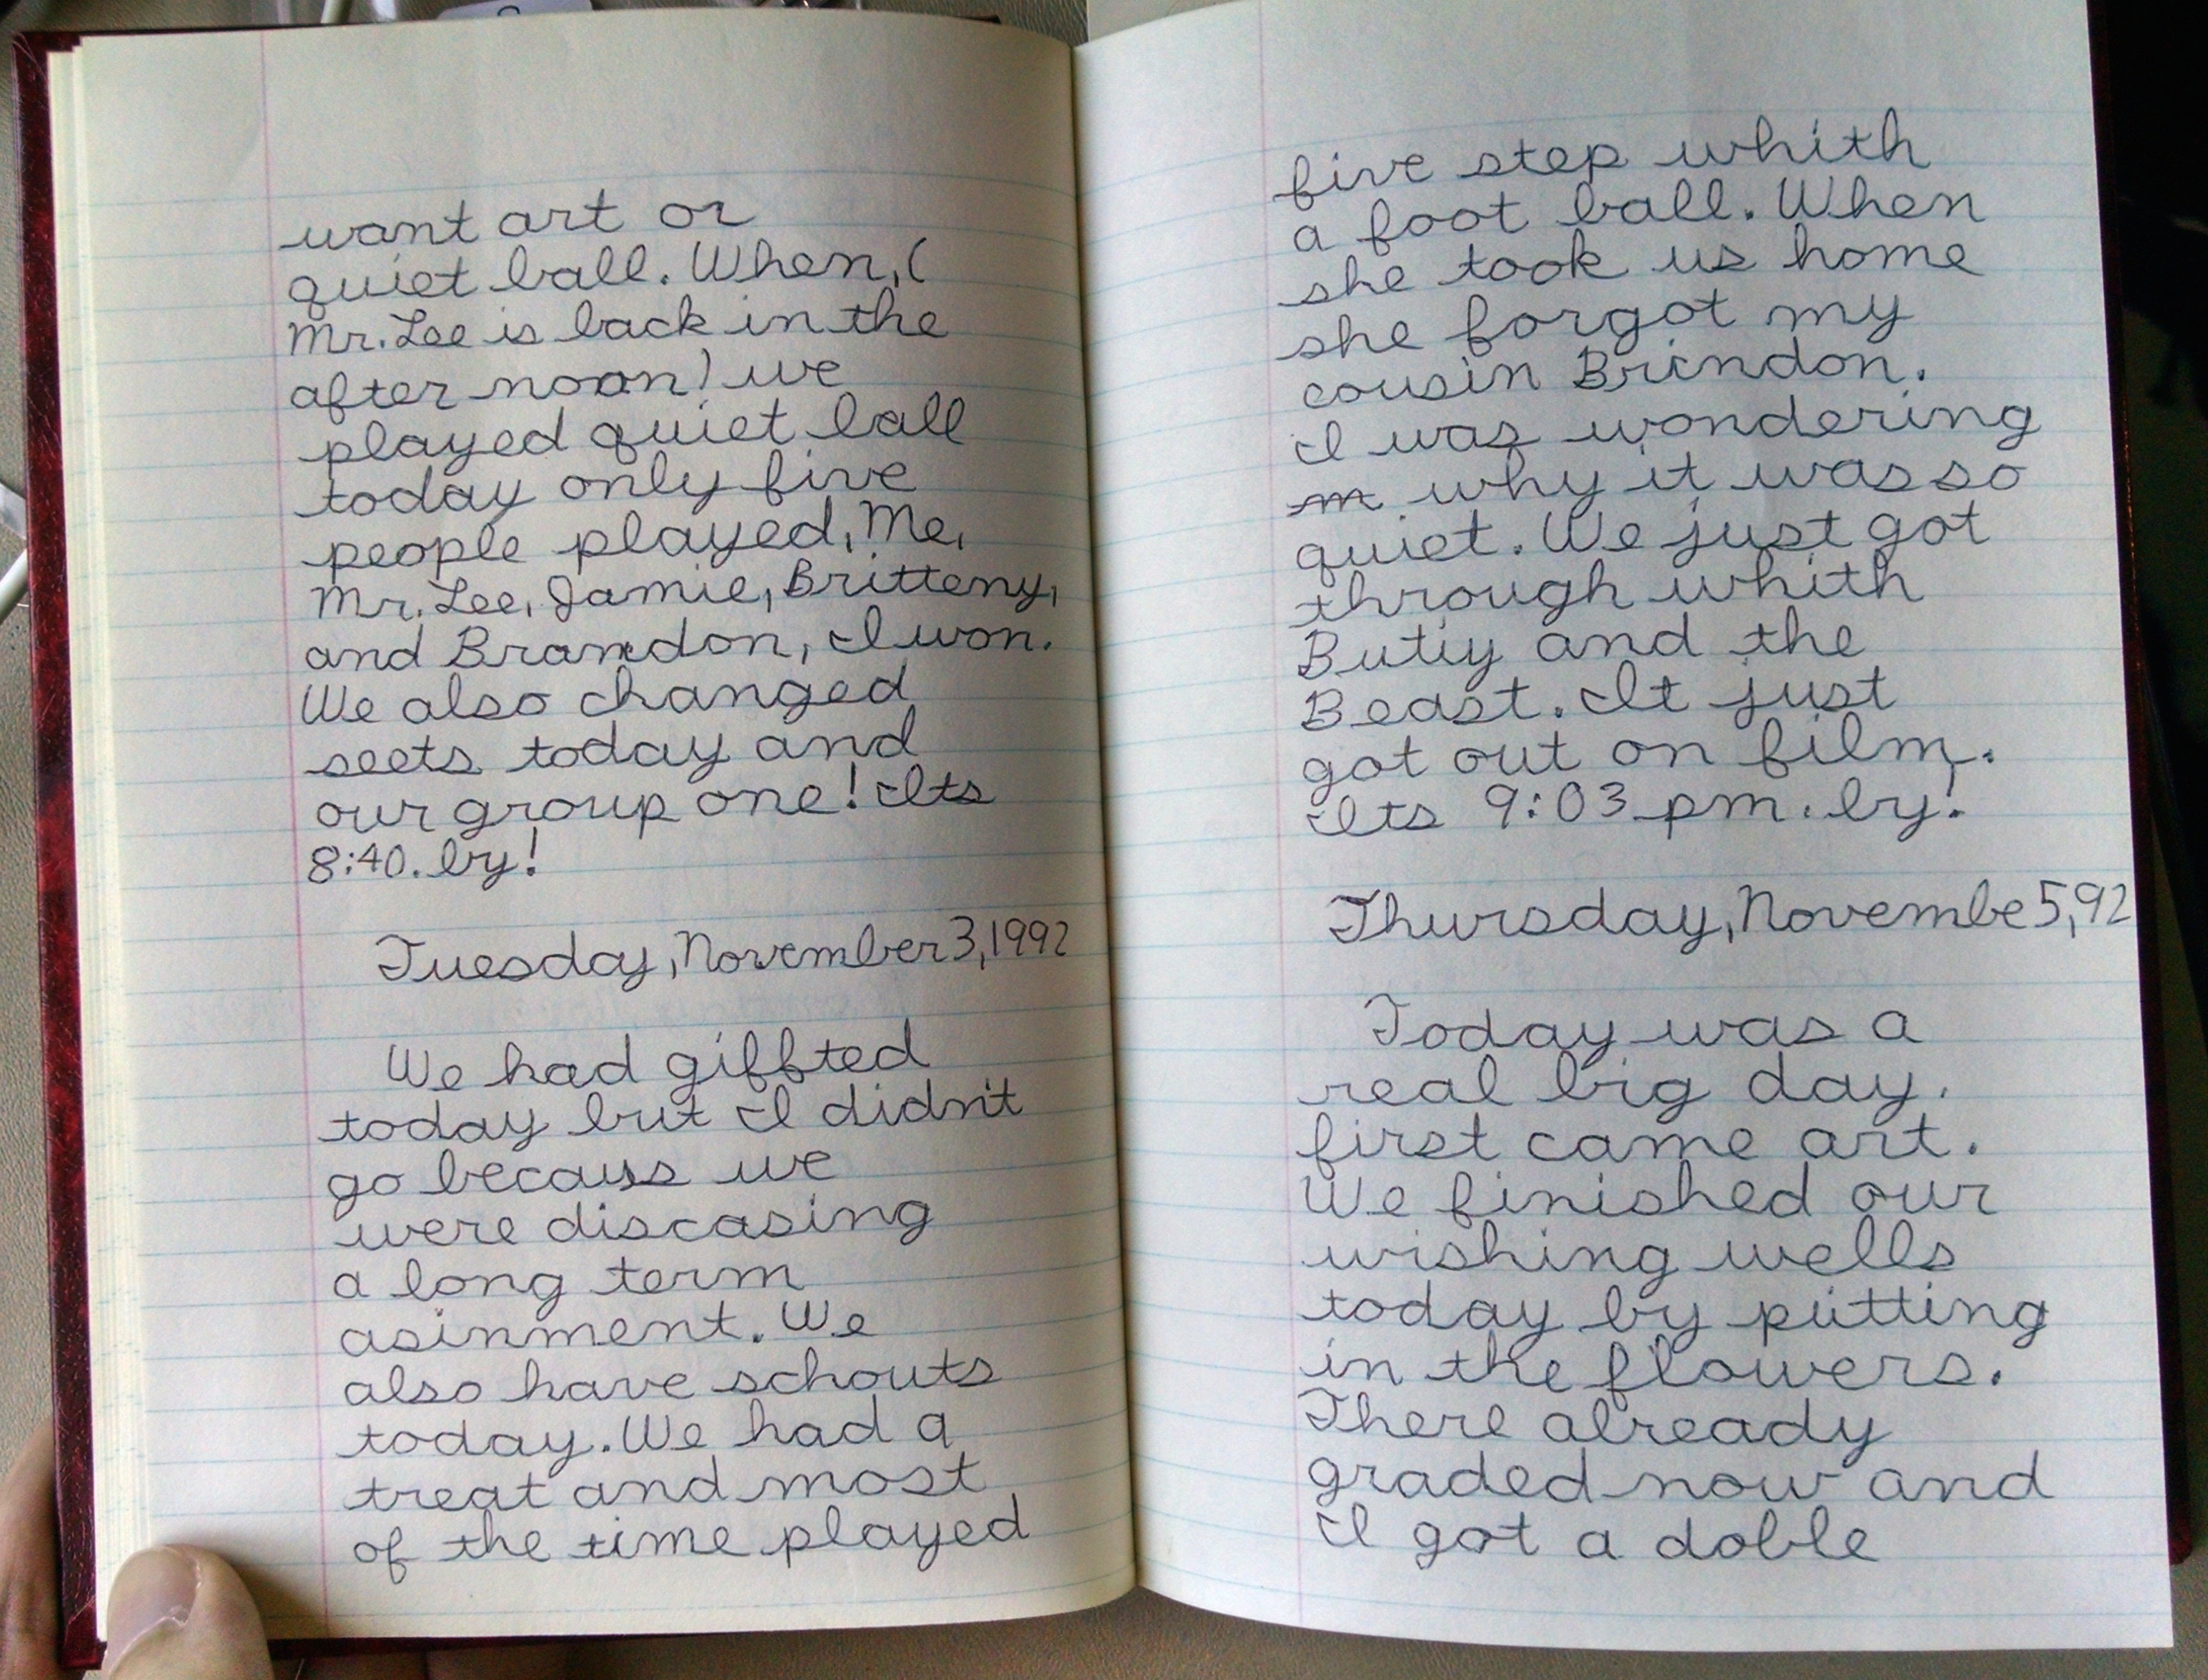 want art or
quiet ball. When, (
Mr. Lee is back in the
after noon) we
played quiet ball
today only five
people played, Me,
Mr. Lee, Jamie, Britteny,
and Brandon, I won.
We also changed
seets today and
our group one! Its
8:40. by!
Tuesday, November 3, 1992
We had giffted
today but I didn't
go becauss we
were discasing
a long term
asinment. We
also have schouts
today. We had a
treat and most
of the time played
five step whith
a foot ball. When
she took us home
she forgot my
cousin Brindon.
I was wondering
m why it was so
quiet. We just got
through whith
Butiy and the
Beast. It just
got out on film.
Its 9:03 pm. by!
Thursday, Novembe 5, 92
Today was a
real big day.
first came art.
We finished our
wishing wells
today by putting
in the flowers.
There already
graded now and
I got a doble